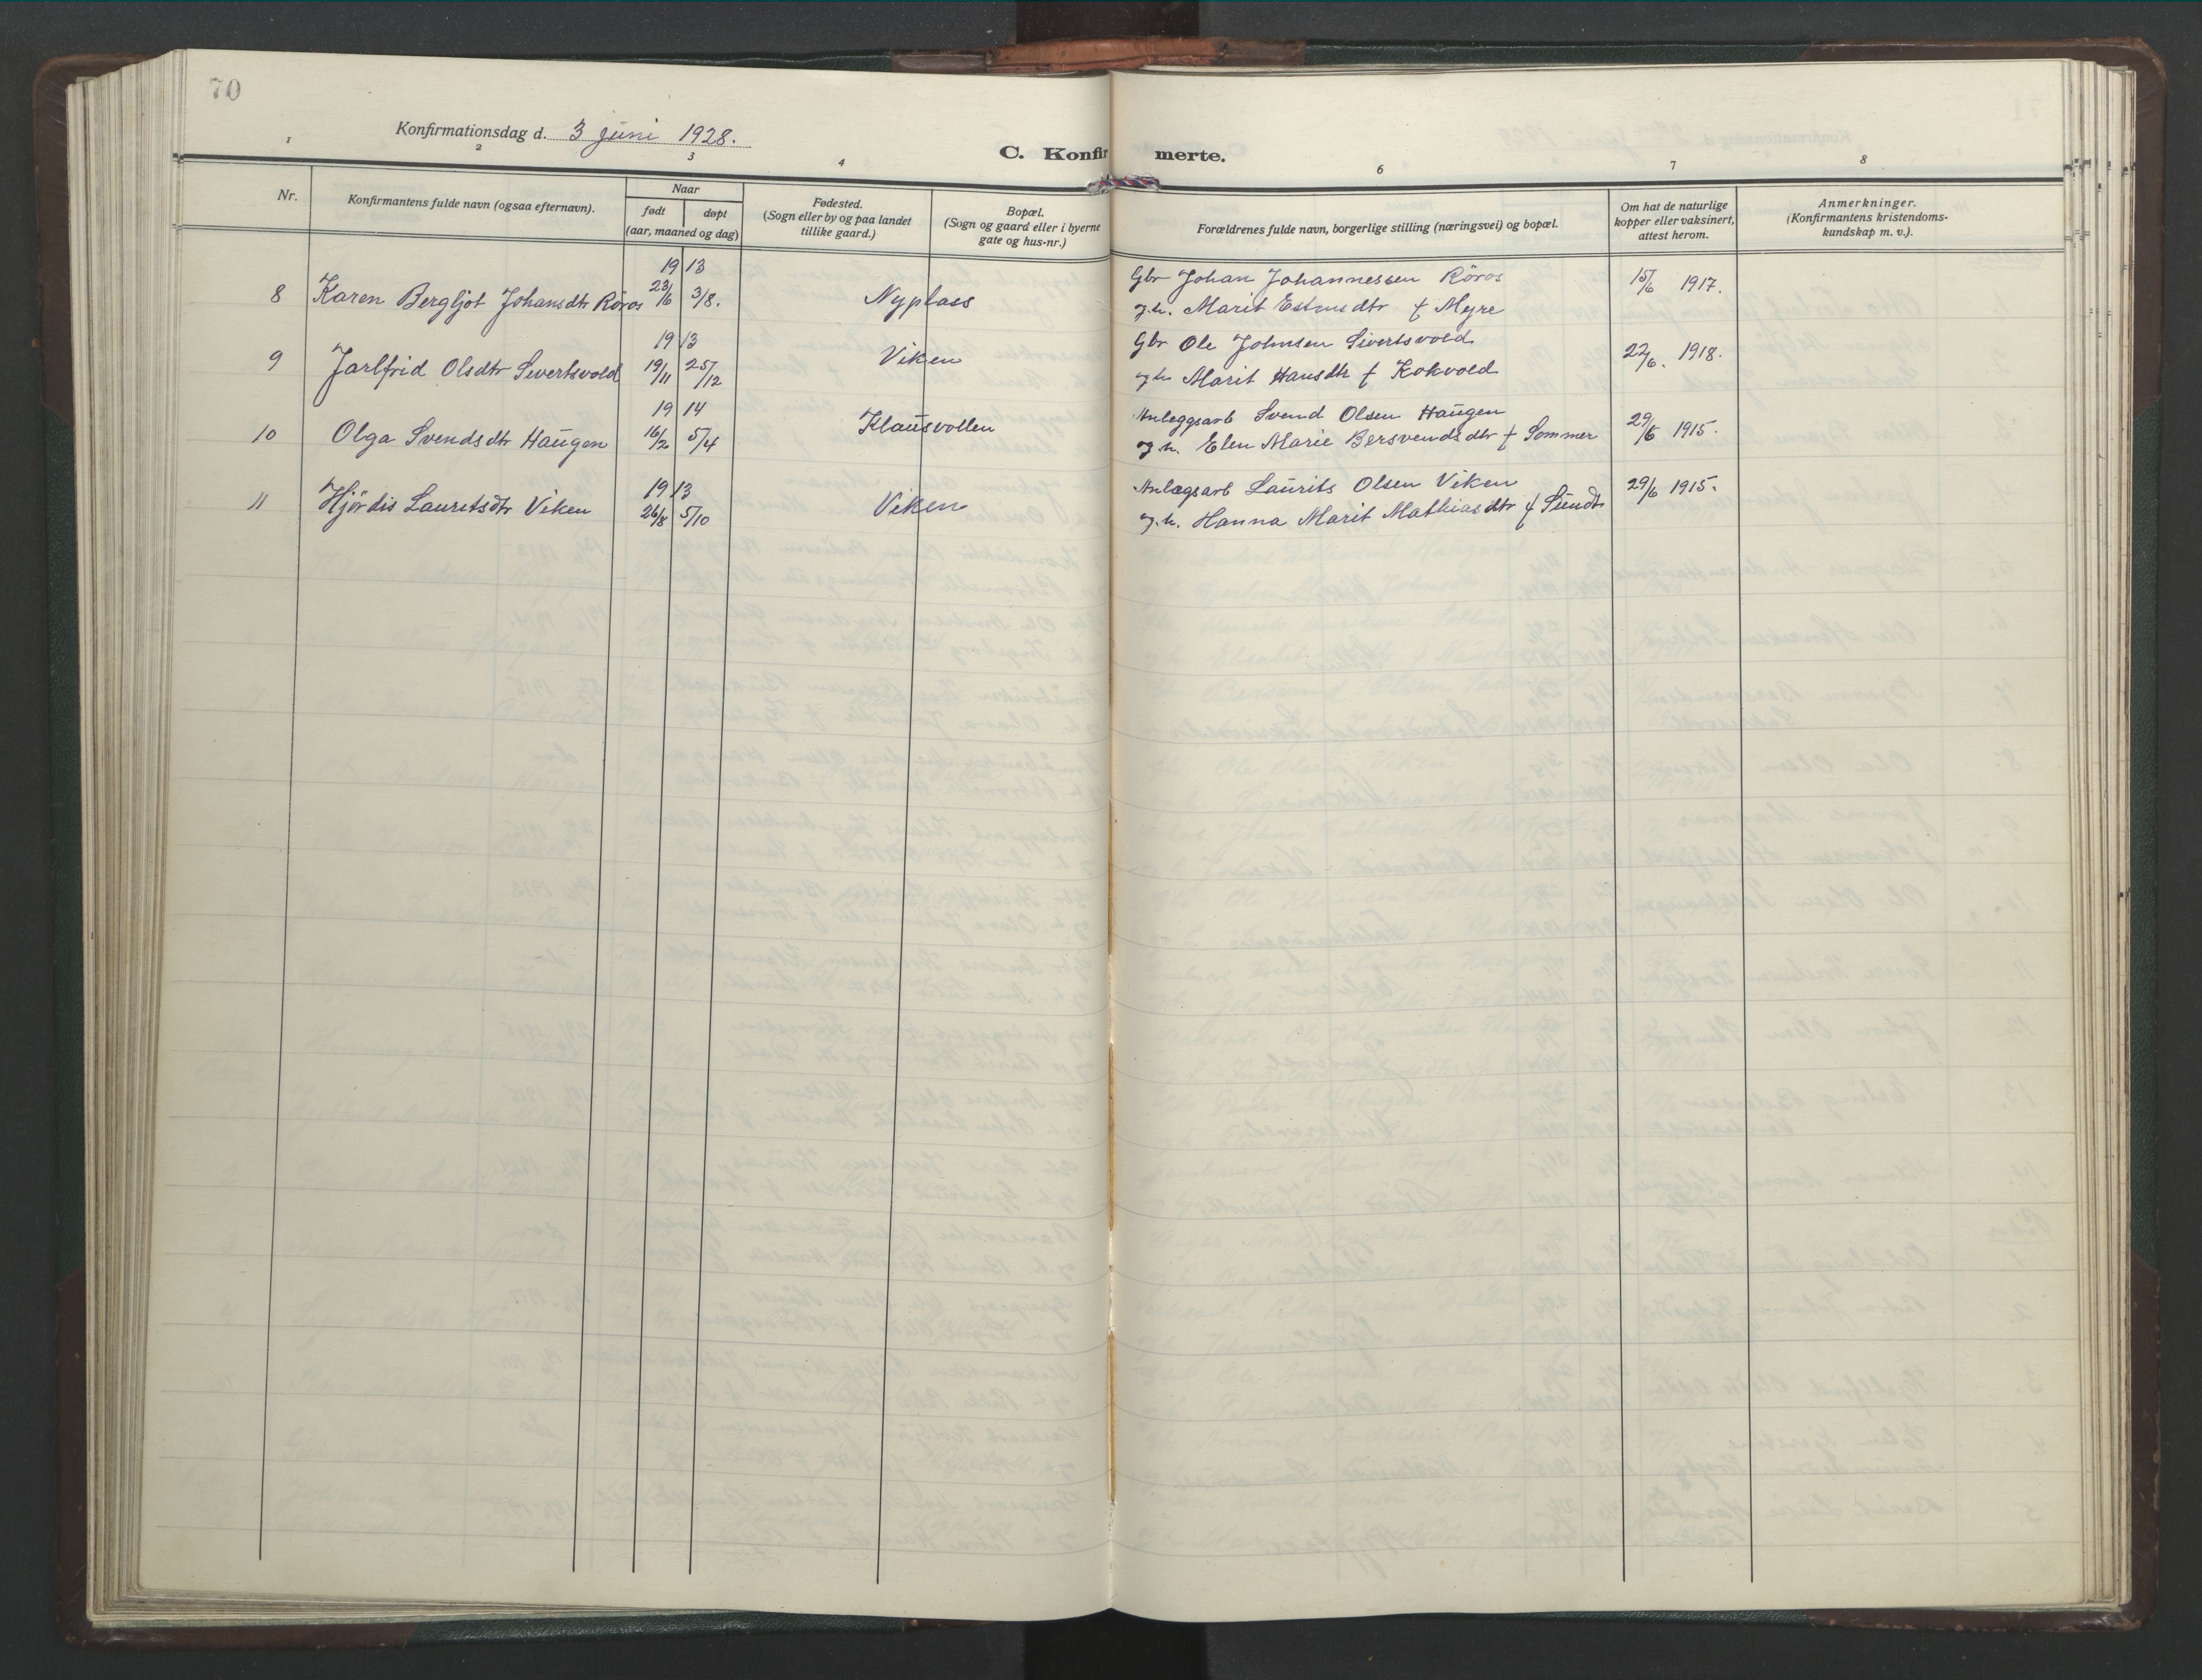 70
Konfirmationsdag d. 3 juni 1928.
C. Konfirmerte.
1 2 3 4 6 7 8
Nr.
Konfirmantens fulde navn (ogsaa efternavn).
Naar
født døpt
(aar, maaned og dag)
Fødested.
(Sogn eller by og paa landet
tillike gaard.)
Bopæl.
(Sogn og gaard eller i byerne
gate og hus-nr.)
Forældrenes fulde navn, borgerlige stilling (næringsvei) og bopæl.
Om hat de naturlige
kopper eller vaksinert,
attest herom.
Anmerkninger.
(Konfirmantens kristendoms-
kundskap m. v.).
19 13
8 Karen Bergljot Johansdtr Röros 23/6 3/8. Nyplass
Gbr Johan Johannessen Röros
og h. Marit Estensdtr f Myre
15/6 1917.
19 13
9 Jarlfrid Olsdtr Sivertsvold 19/11 25/12 Viken
Gbr Ole Johnsen Sivertsvold
og h. Marit Hansdtr f Kokvold
22/6. 1918.
19 14
10 Olga Svendsdtr Haugen 16/2 5/4 Klausvollen
Anleggsarb Svend Olsen Haugen
og h. Elen Marie Bersvendsdtr f Sommer
29/6 1915.
19 13
11 Hjördis Lauritsdtr Viken 26/8 5/10 Viken
Anlægsarb Laurits Olsen Viken
og h. Hanna Marit Mathiasdtr f Sundt
29/6 1915.